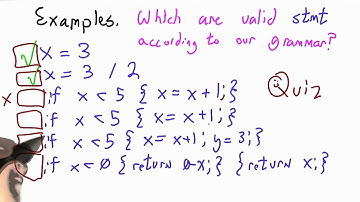 Examples. Which are valid stmt
according to our grammar?
✓ x = 3
✓ x = 3 / 2
x if x < 5 { x = x + 1; }
if x < 5 { x = x + 1; }
if x < 5 { x = x+1; y = 3; }
if x < 0 { return 0-x; } { return x; }
Quiz